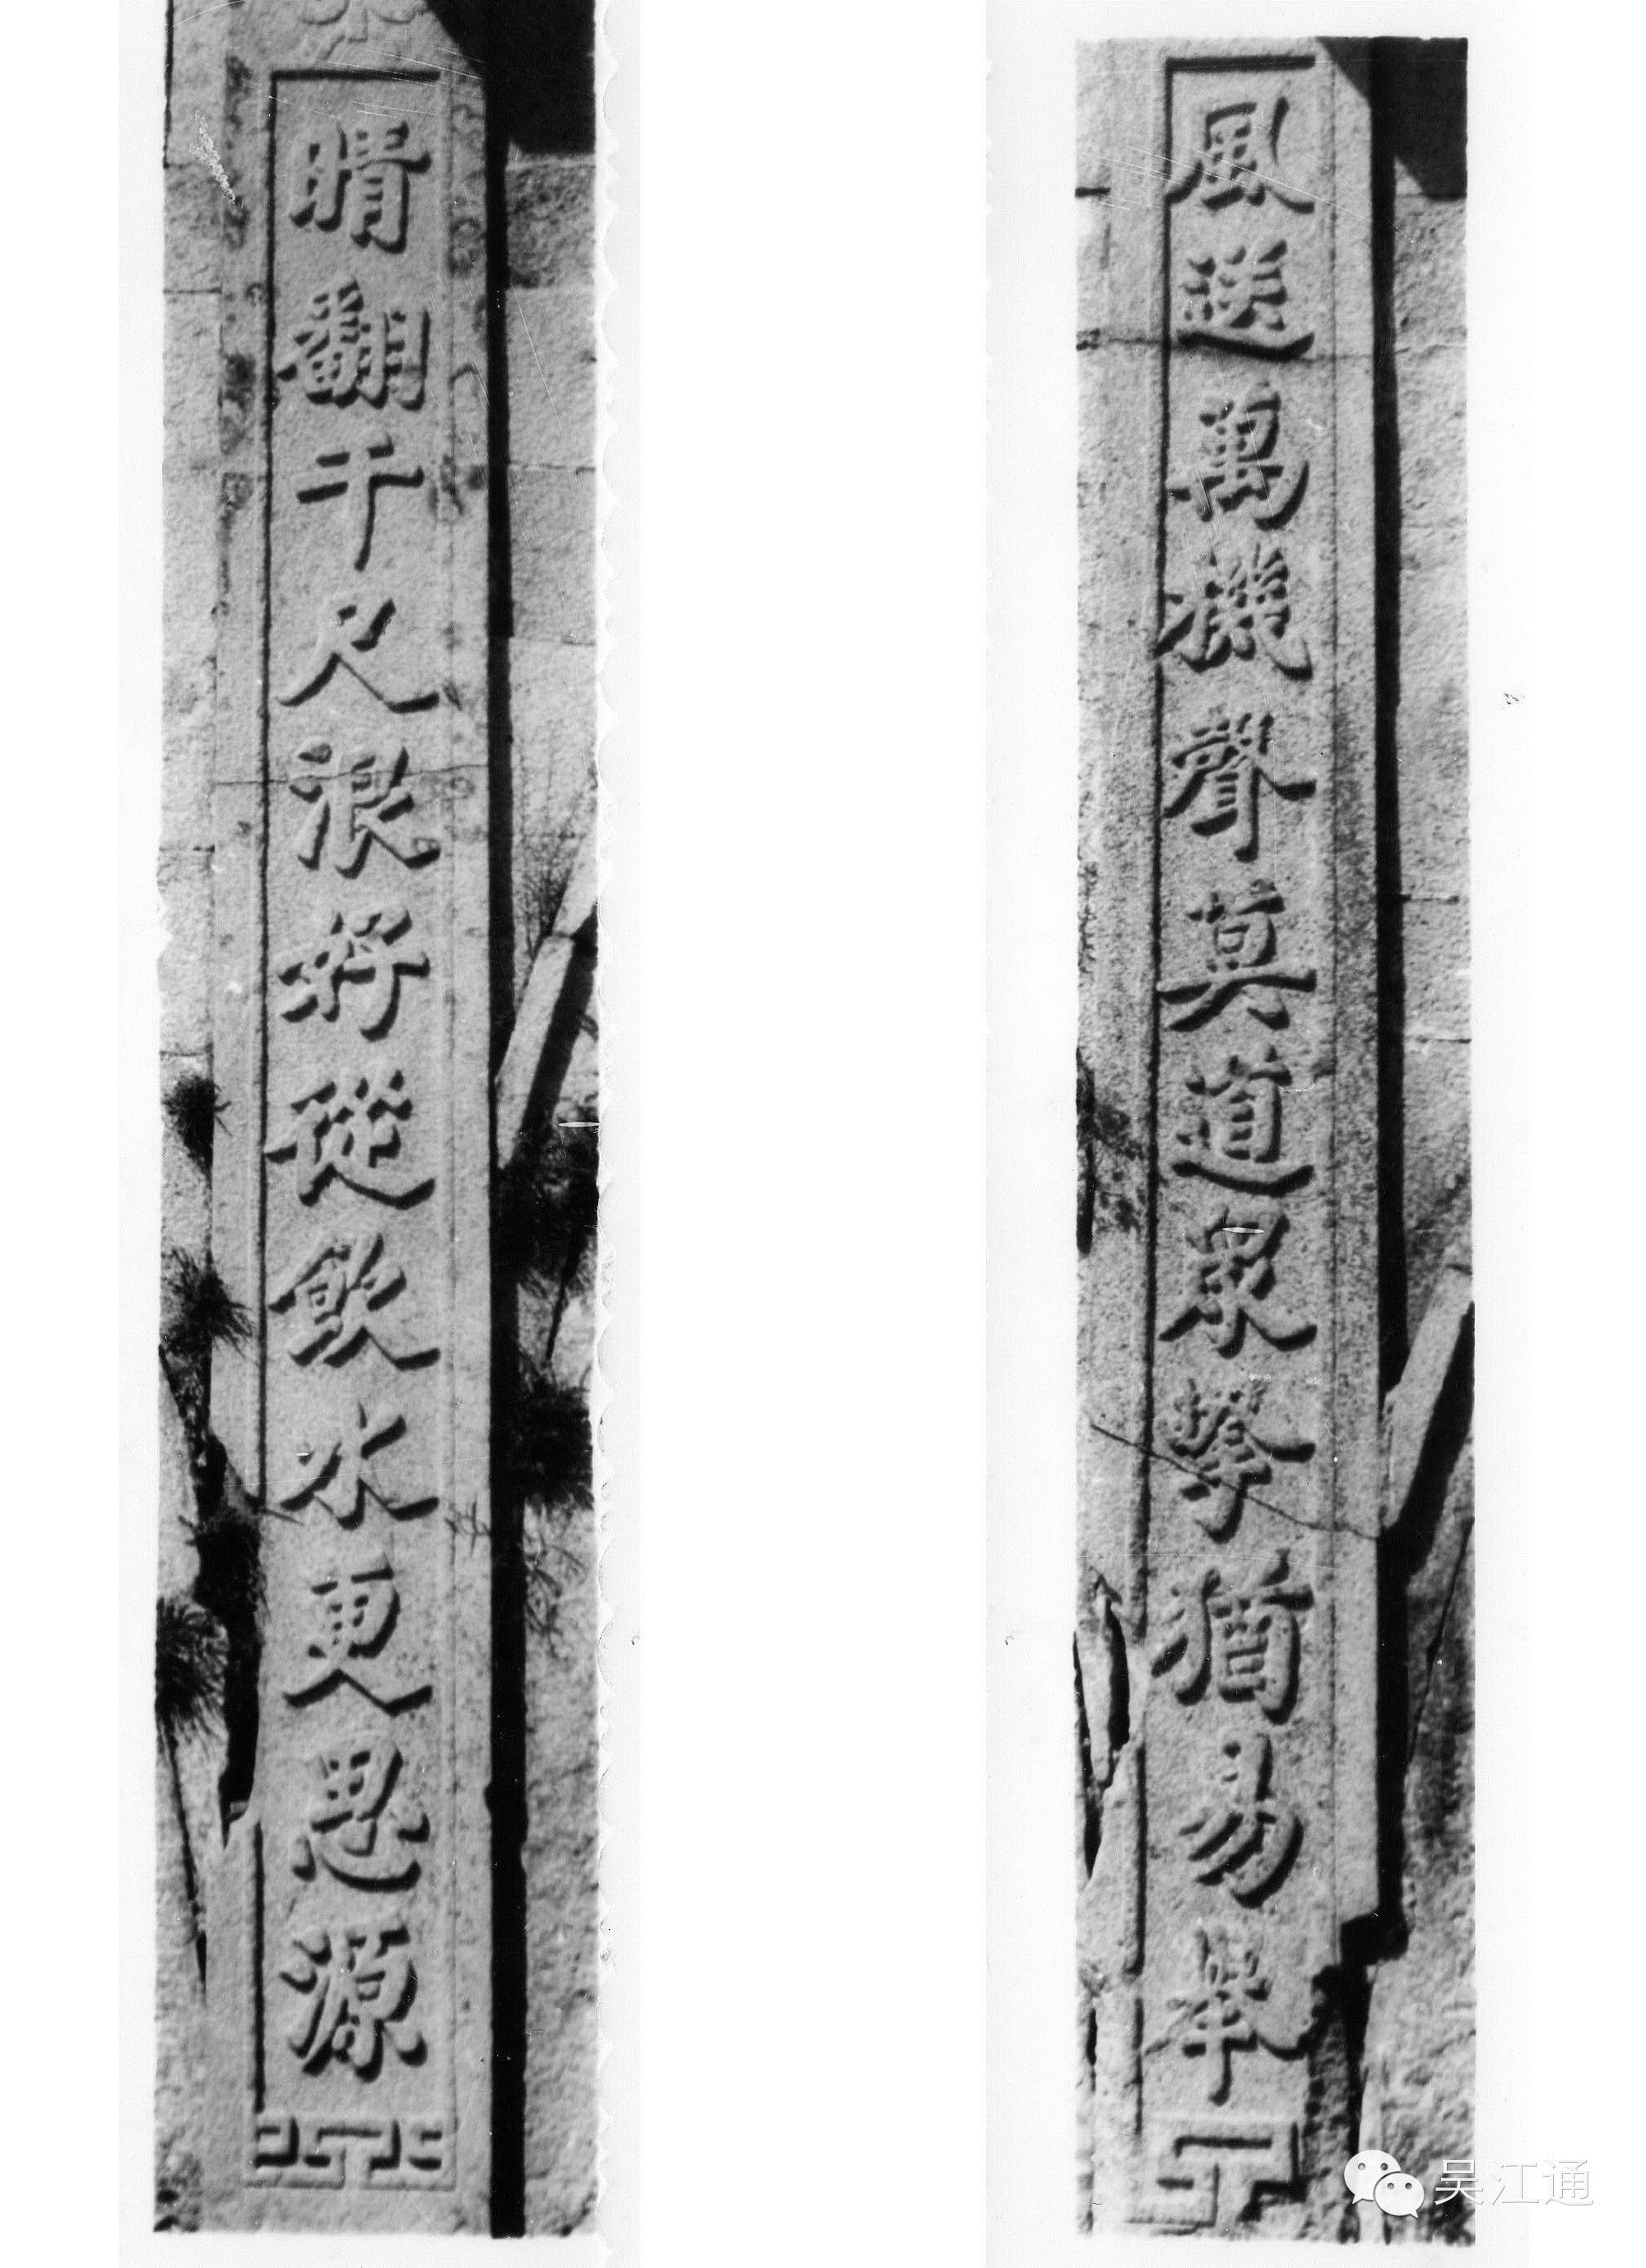 風送萬機聲莫道衆擎猶易舉
晴翻千尺浪好從飲水更思源
吴江通